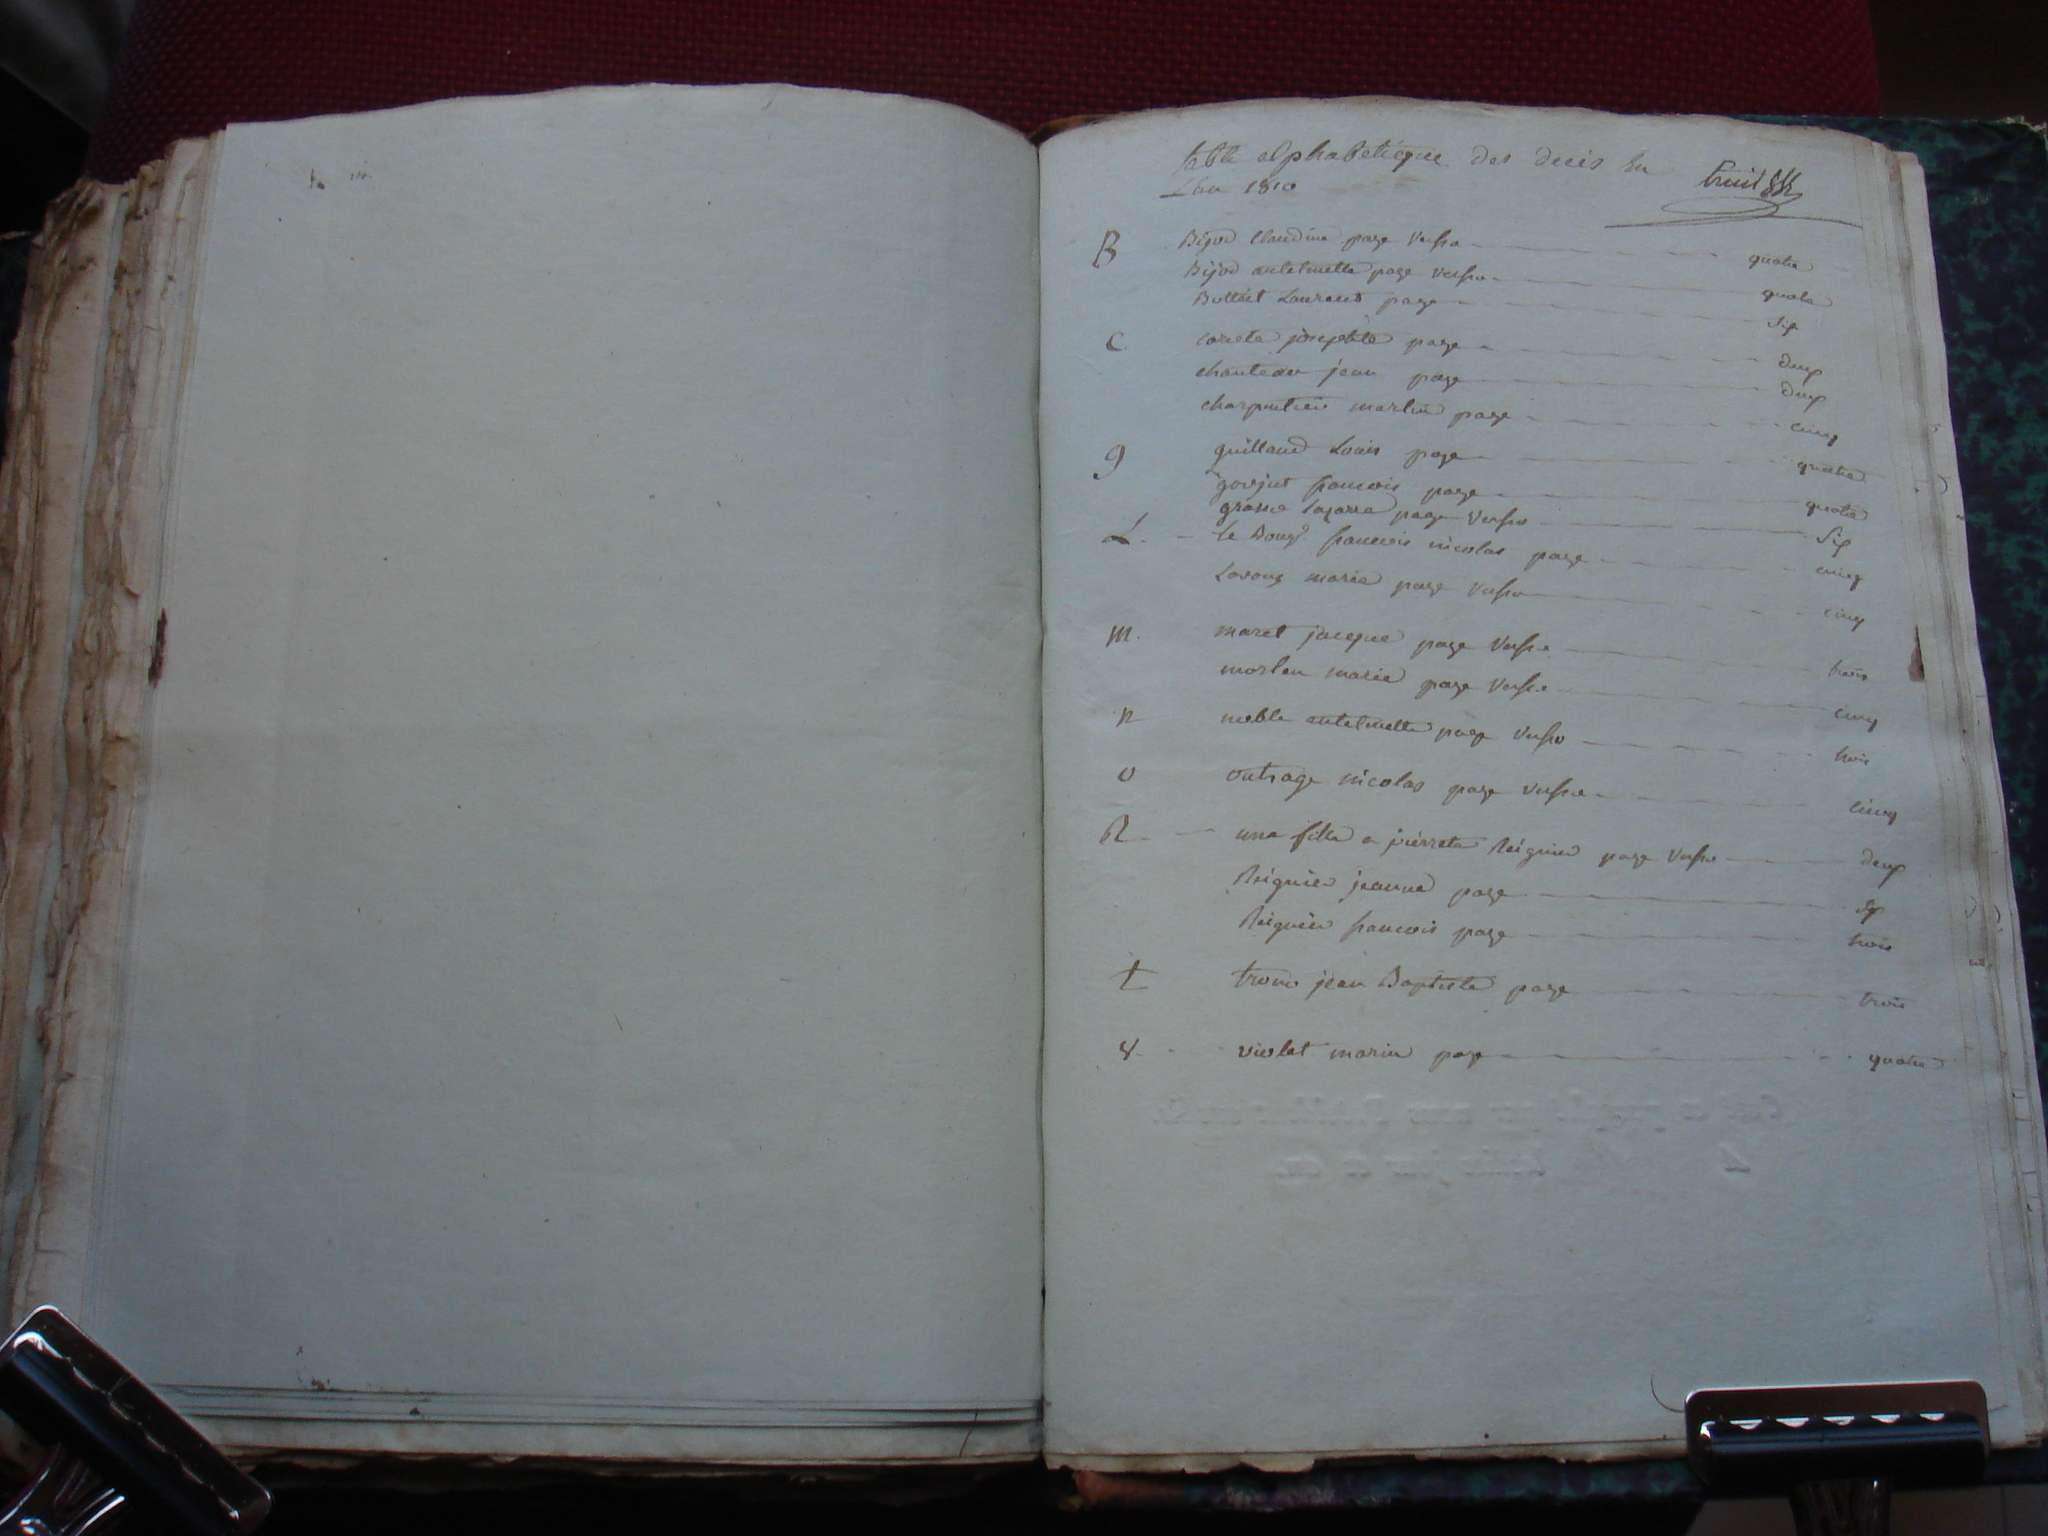 table alphabetique des deces en
L'an 1810
B Bijod Claudine page Verso quatre
Bijod antelmette page verso quatre
Bottet Laurent page Six
C josephte page deux
chanteau jean page deux
charpentier martin page cinq
g guillaud Louis page quatre
goujut francois page quatre
page verso Six
L Le francois nicolas page cinq
marie page verso cinq
m maret jacque page verso trois
morleu marie page verso cinq
n noble antelmette page verso trois
o outrage nicolas page verso cinq
R une fille a pierrete Reignier page verso deux
Reignier jeanne page Six
Reignier francois page trois
t trono jean Baptiste page trois
V violet marin page quatre